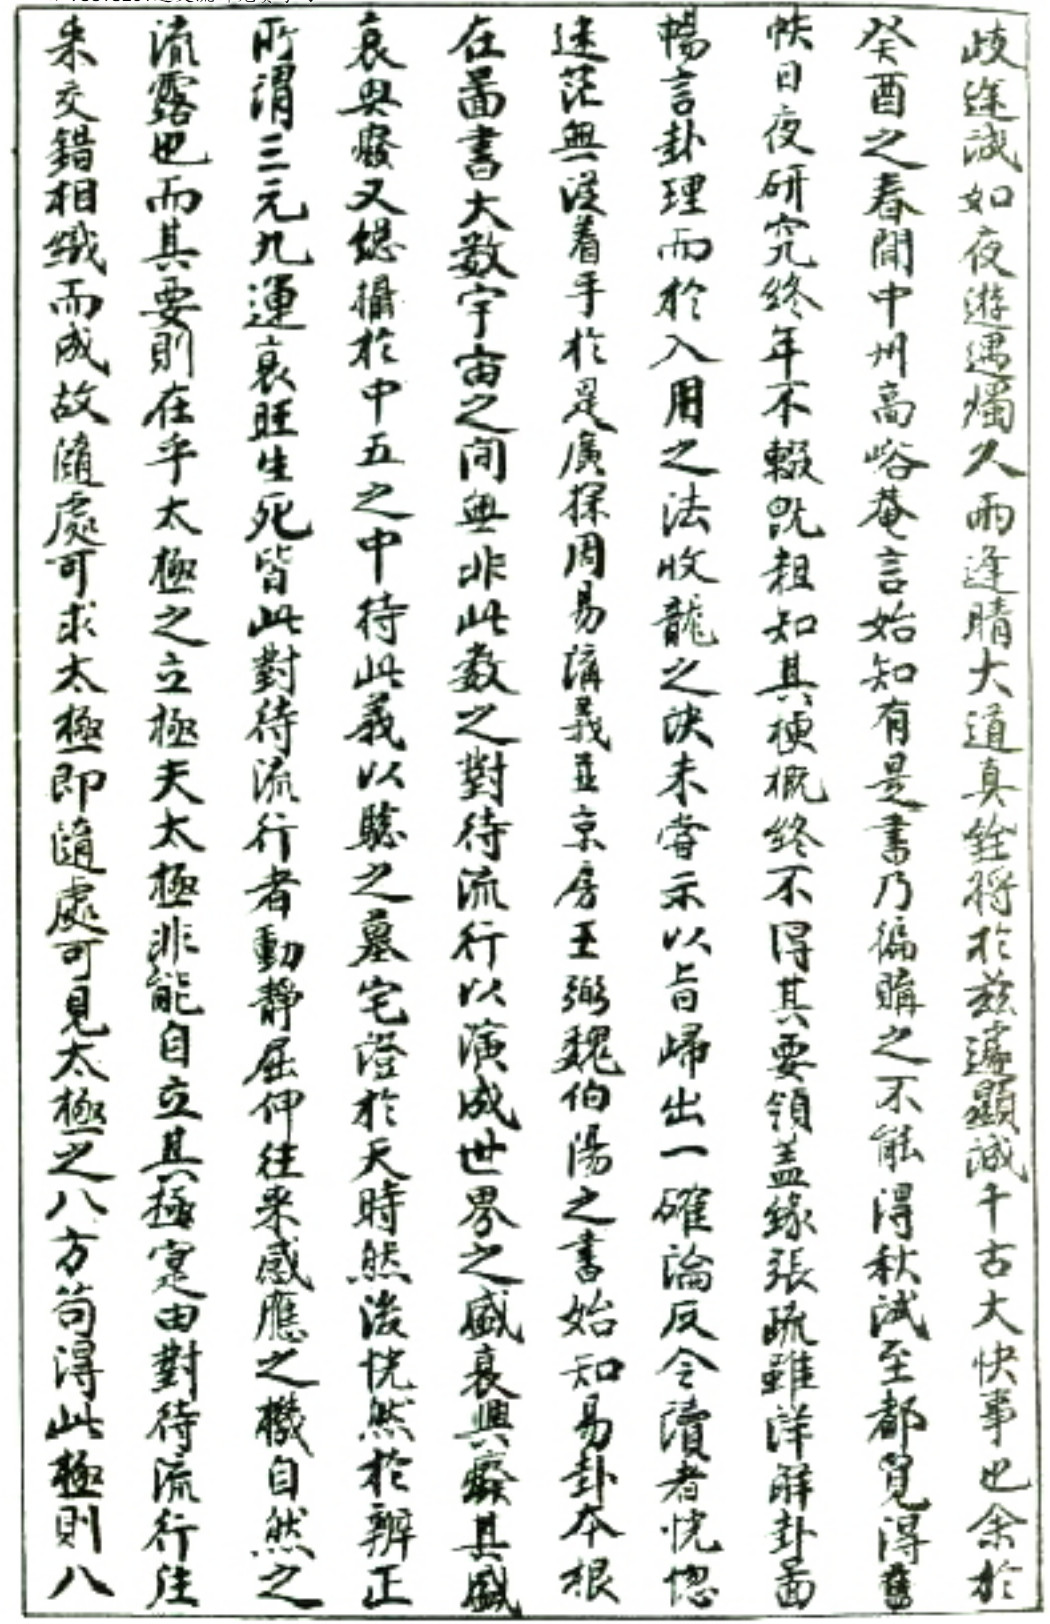 歧途誠如夜遊遇燭久雨逢晴大道真銓將於茲遽顯誠千古大快事也余於
癸酉之春聞中州高峪菴言始知有是書乃徧購之不能得秋試至都覓得舊
帙日夜研究終年不輟既粗知其梗概終不得其要領盖緣張疏雖詳解卦啚
暢言卦理而於入用之法收龍之訣未嘗示以旨歸出一確論反令讀者恍惚
迷茫無從着手於是廣採周易講義並京房王弼魏伯陽之書始知易卦本根
在啚書大数宇宙之间無非此数之對待流行以演成世界之盛衰興癈其盛
衰與癈又縂攝於中五之中待此義以騐之墓宅澄於天時然後恍然於辨正
所謂三元九運衰旺生死皆此對待流行者動靜屈伸往来感應之機自然之
流露也而其要則在乎太極之立極夫太極非能自立其極寔由對待流行往
来交錯相織而成故隨處可求太極即隨處可見太極之八方苟得此極則八